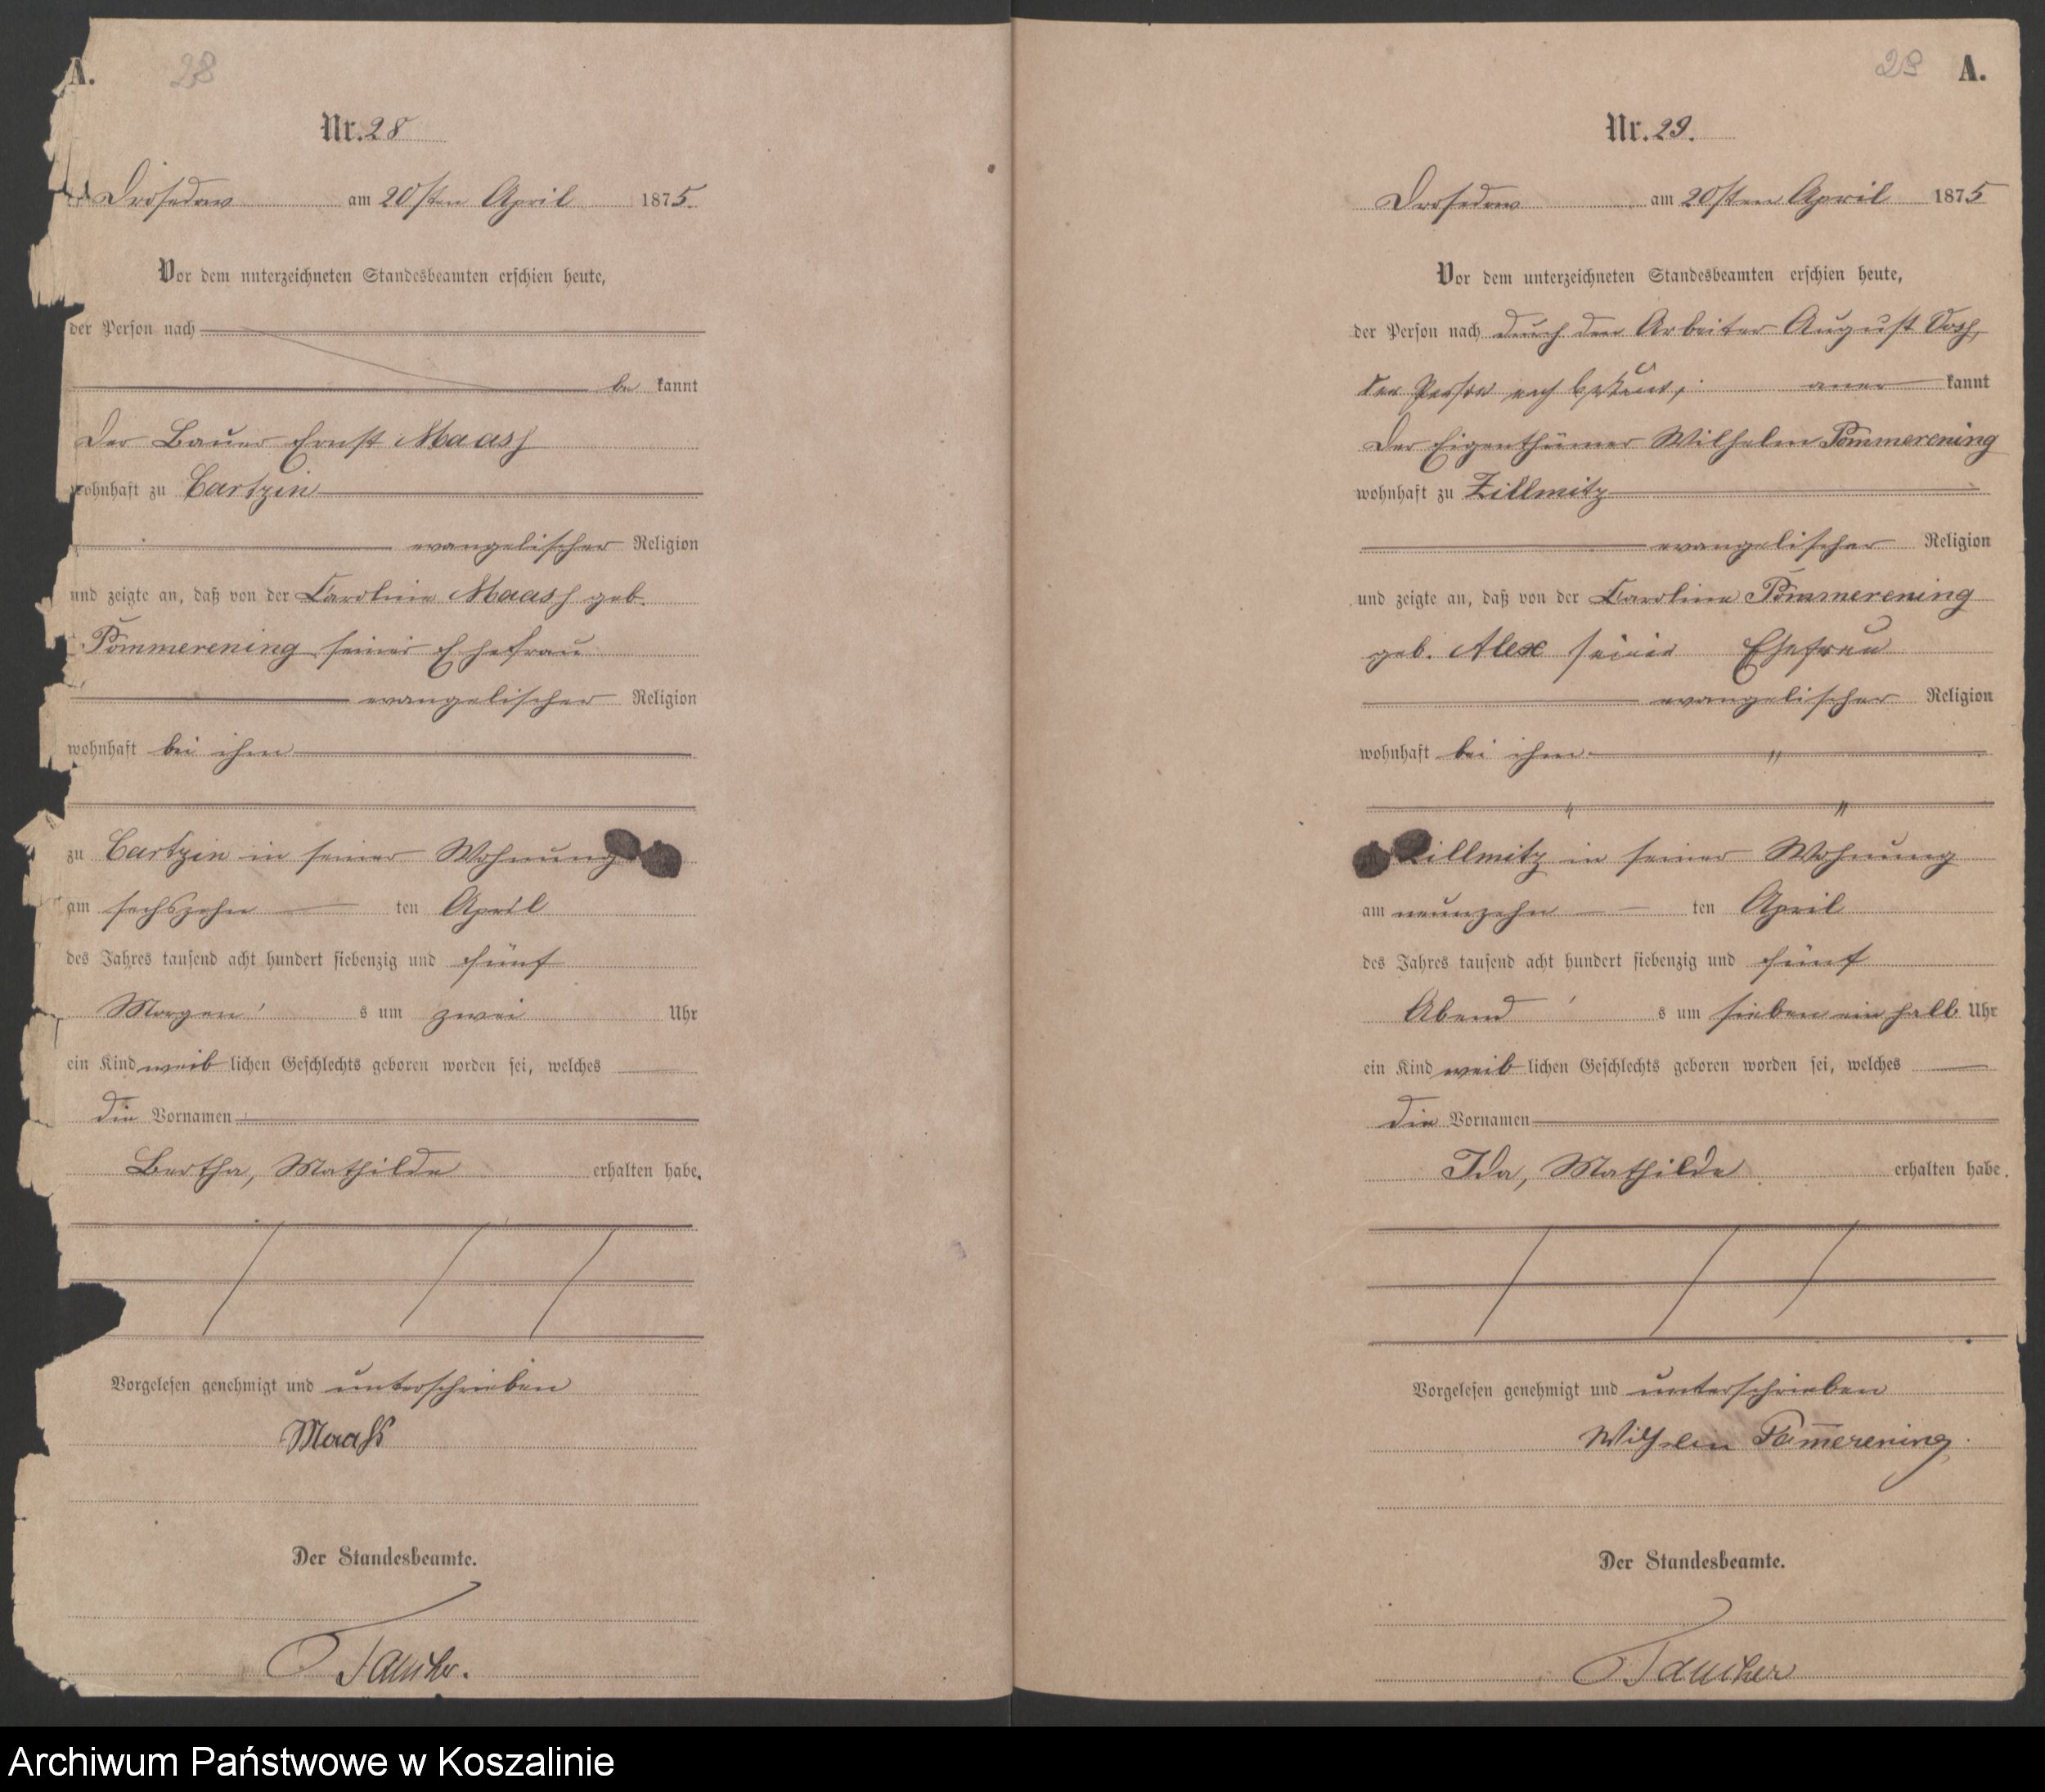 A.
28
Nr. 28
Drosedow am 20sten April 1875.
Vor dem unterzeichneten Standesbeamten erschien heute,
der Person nach
be kannt
Der Bauer Ernst Maass
wohnhaft zu Cartzin
evangelischer Religion
und zeigte an, daß von der Caroline Maass geb.
Pom̄merening seiner Ehefrau
evangelischer Religion
wohnhaft bei ihm
zu Cartzin in seiner Wohnung
am sechszehn ten April
des Jahres tausend acht hundert siebenzig und fünf
Morgen s um zwei Uhr
ein Kind weib lichen Geschlechts geboren worden sei, welches
die Vornamen
Bertha, Mathilde erhalten habe.
Vorgelesen genehmigt und unterschrieben
Maaß
Der Standesbeamte.
29 A.
Nr. 29.
Drosedow am 20sten April 1875
Vor dem unterzeichneten Standesbeamten erschien heute,
der Person nach durch den Arbeiter August
der Person nach bekannt, aner kannt
Der Eigenthümer Wilhelm Pom̄merening
wohnhaft zu Zillmitz
evangelischer Religion
und zeigte an, daß von der Caroline Pom̄merening
geb. Alex seiner Ehefrau
evangelischer Religion
wohnhaft bei ihm "
" "
zu Zillmitz in seiner Wohnung
am neunzehn ten April
des Jahres tausend acht hundert siebenzig und fünf
Abend s um sieben ein halb Uhr
ein Kind weib lichen Geschlechts geboren worden sei, welches
die Vornamen
Ida, Mathilde erhalten habe.
Vorgelesen genehmigt und unterschrieben
Wilhelm Pom̄erening
Der Standesbeamte.
Archiwum Państwowe w Koszalinie